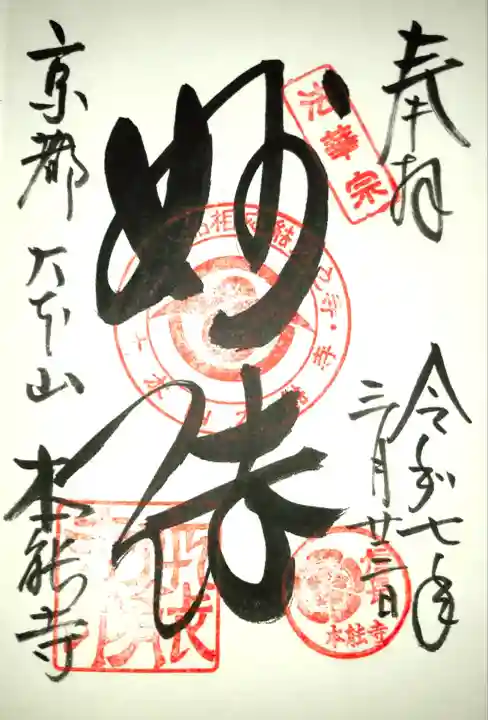 奉拝
令和七年
三月廿三日
法華宗
妙法
本能寺
京都 大本山 本能寺